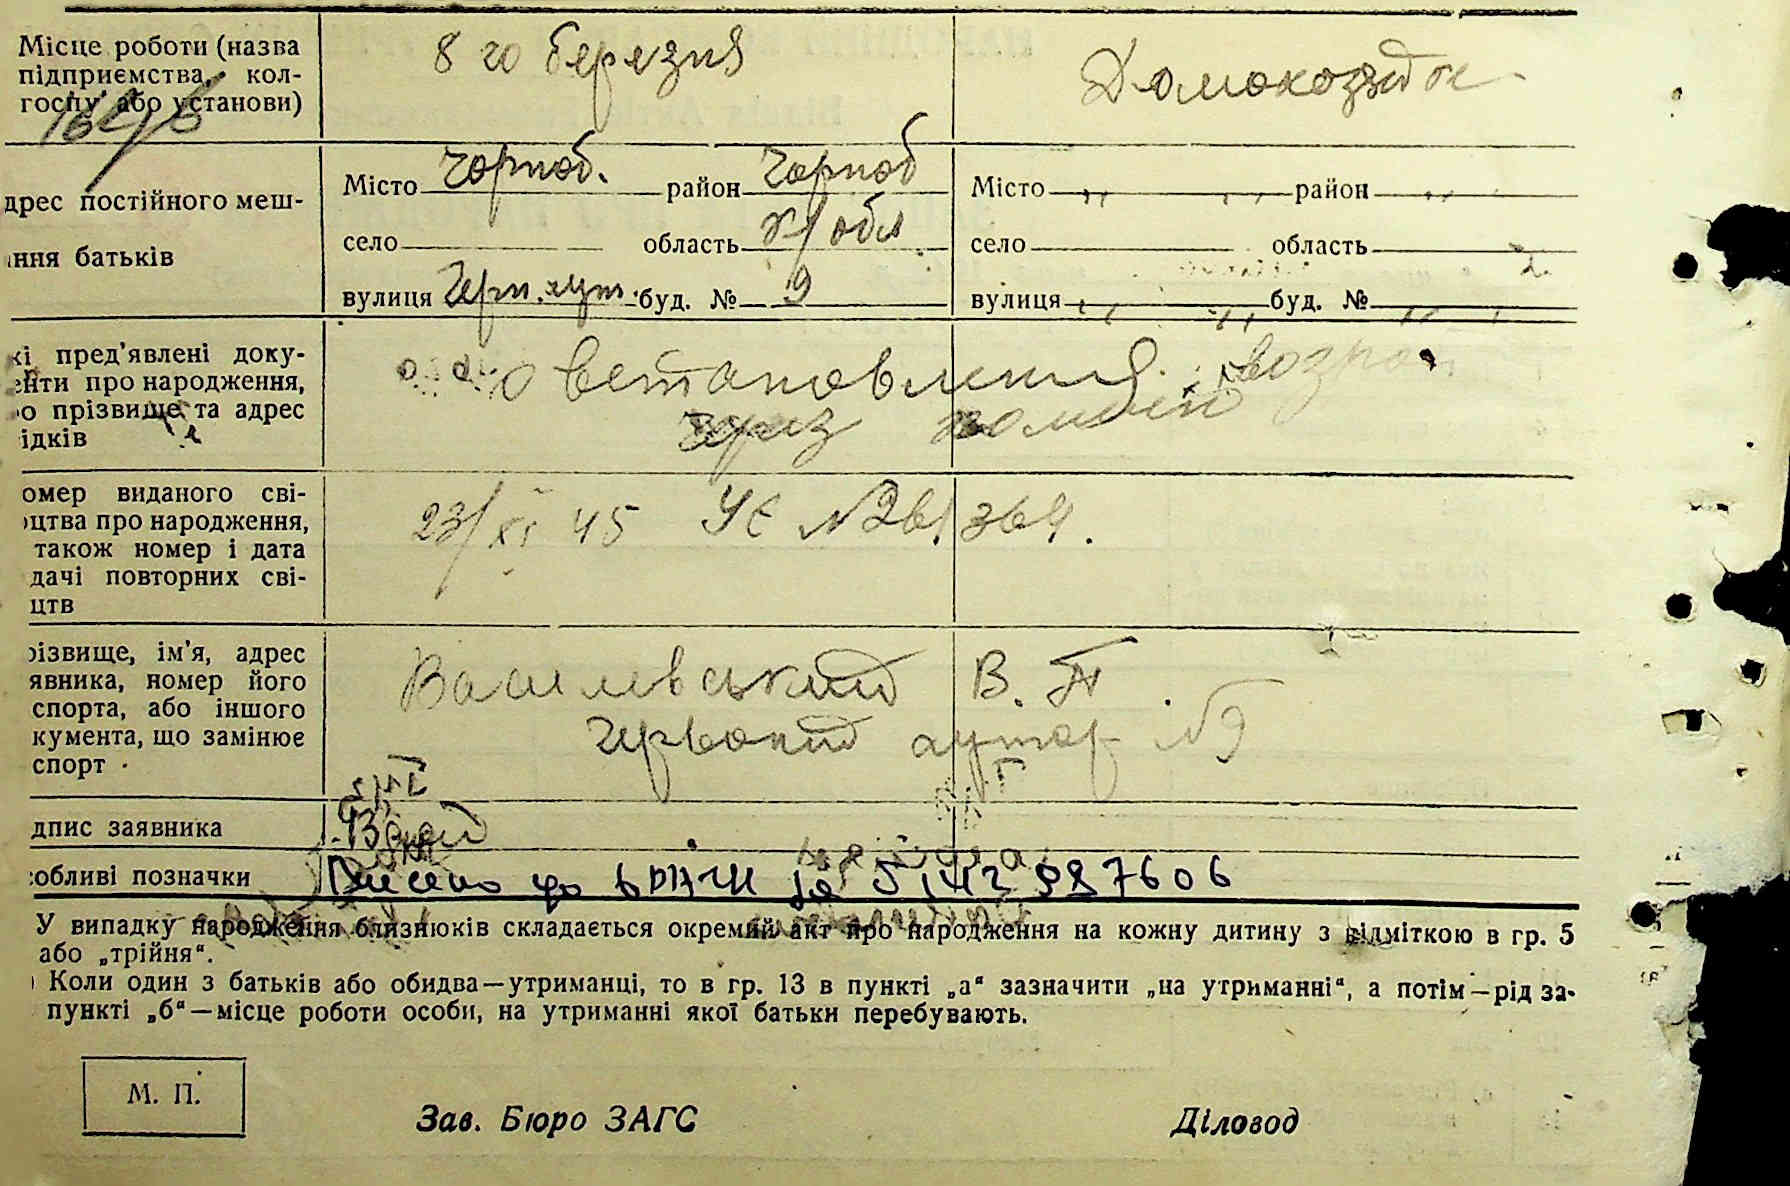 Місце роботи (назва підприємства, колгоспу або установи)
8 го березня
Домохозяйка
дрес постійного меш-
ння батьків
Місто Чорноб. район Чорноб
село область К/обл
вулиця Черв. хут. буд. № 9
Місто „ „ район „
село область
вулиця „ „ буд. № „ „
кі пред'явлені доку-
енти про народження,
о прізвище та адрес
ідків
встановлення возраст
через
омер виданого сві-
оцтва про народження,
також номер і дата
дачі повторних сві-
цтв
23/XI 45 УЄ № 261364.
різвище, ім'я, адрес
явника, номер його
спорта, або іншого
кумента, що замінює
спорт
Василевський В. П.
Червоний хутор №9
дпис заявника
обливі позначки
987606
У випадку народження близнюків складається окремий акт про народження на кожну дитину з відміткою в гр. 5
або „трійня“.
) Коли один з батьків або обидва—утриманці, то в гр. 13 в пункті „а“ зазначити „на утриманні“, а потім—рід за-
пункті „б“—місце роботи особи, на утриманні якої батьки перебувають.
М. П.
Зав. Бюро ЗАГС
Діловод